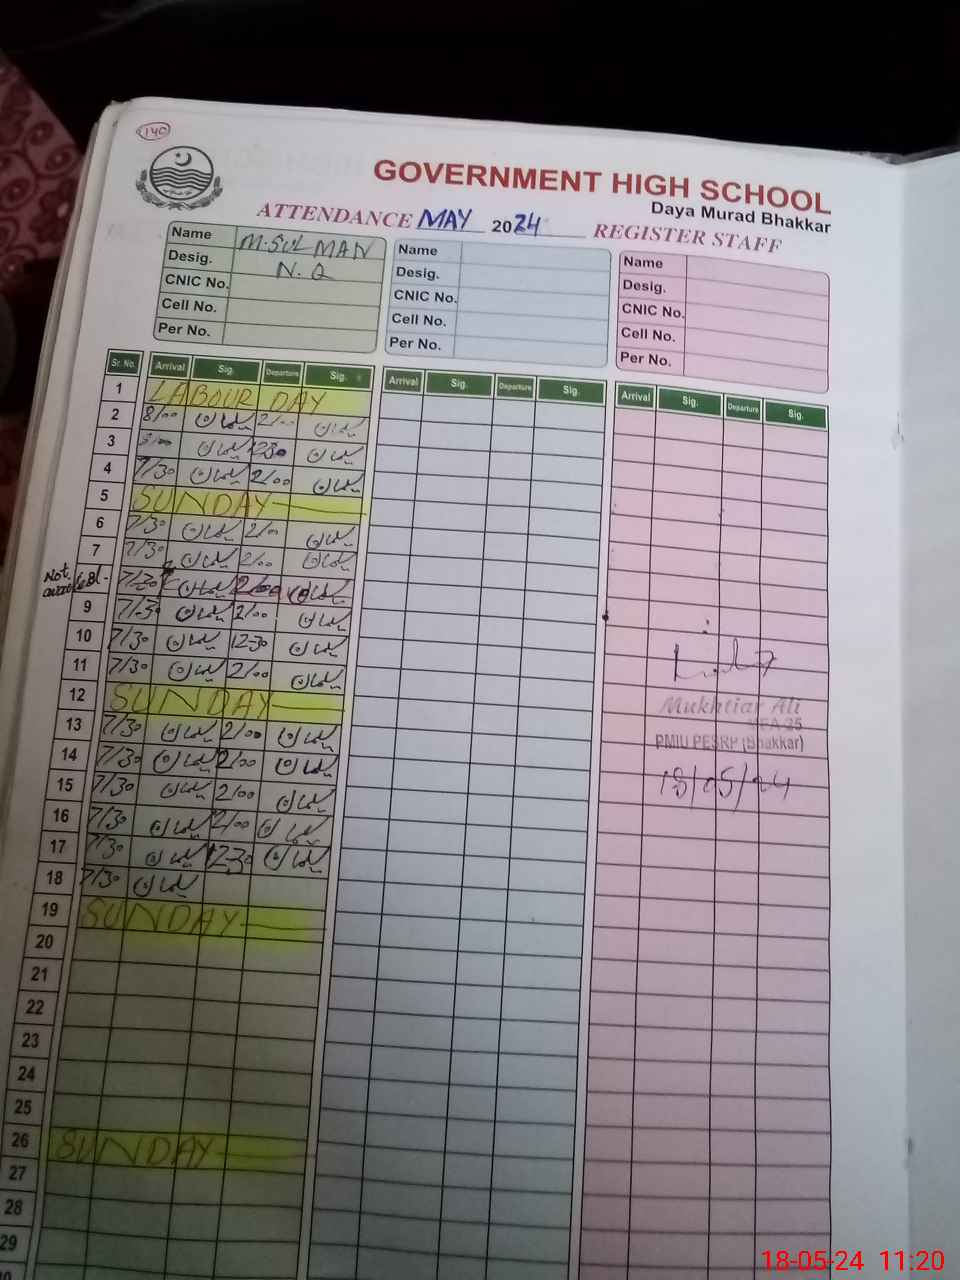 140
GOVERNMENT HIGH SCHOOL
Daya Murad Bhakkar
ATTENDANCE MAY 2024 REGISTER STAFF
Name M.SUL MAN
Desig. N.Q
CNIC No.
Cell No.
Per No.
Name
Desig.
CNIC No.
Cell No.
Per No.
Name
Desig.
CNIC No.
Cell No.
Per No.
Sr. No. Arrival Sig. Departure Sig. Arrival Sig. Departure Sig. Arrival Sig. Departure Sig.
1 LABOUR DAY
2 8/00 2/00
3 8/00 1230
4 7/30 2/00
5 SUNDAY
6 7/30 2/00
7 7/30 2/00
Not available 8 7/30 2/00
9 7/30 2/00
10 7/30 12-30
11 7/30 2/00
12 SUNDAY
13 7/30 2/00
14 7/30 2/00
15 7/30 2/00
16 7/30 2/00
17 7/30 12-30
18 7/30
19 SUNDAY
20
21
22
23
24
25
26 SUNDAY
27
28
29
30
Mukhtiar Ali
MEA-25
PMIU PESRP (Bhakkar)
18/05/24
18-05-24 11:20